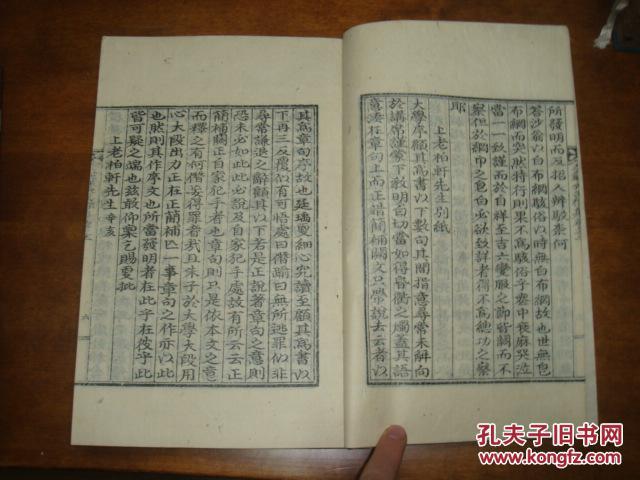 所發明而互招人辨駁柰何
答沙翁以白布網駭俗以時無白布網故也世無包
布網而突然特行則果不爲駭俗乎囊中喪麻哭泣
當一一致謹而於自祥至吉六變服之節皆闕而不
察但於網巾之色白必欲致詳者得不爲緦功之察
耶
上老柏軒先生別紙
大學序顧其爲書以下數句其間指意尋常未解向
於講席謹蒙下敎明白切當如得昏衢之燭蓋其語
意湊在章句上而正錯簡補闕文只帶說去云者以
其爲章句序故也延瑀更細心究讀至顧其爲書以
下再三反覆似有可悟處曰僭踰曰無所逃罪似非
尋常謙退之辭顧其以下若是正說著章句之意則
恐未必如此說及自家犯手處故有所云云正
簡補闕正自家犯手者也章句則只是依本文之意
而釋之有何僭妄得罪者哉且朱子於大學大段用
心大段出力正在正簡補亡一事章句之作亦以此
也然則其作序文也所當發明者在此乎在彼乎此
皆可疑之端也玆敢仰稟乞賜更批
上老柏軒先生辛亥
六
孔夫子旧书网
www.kongfz.com